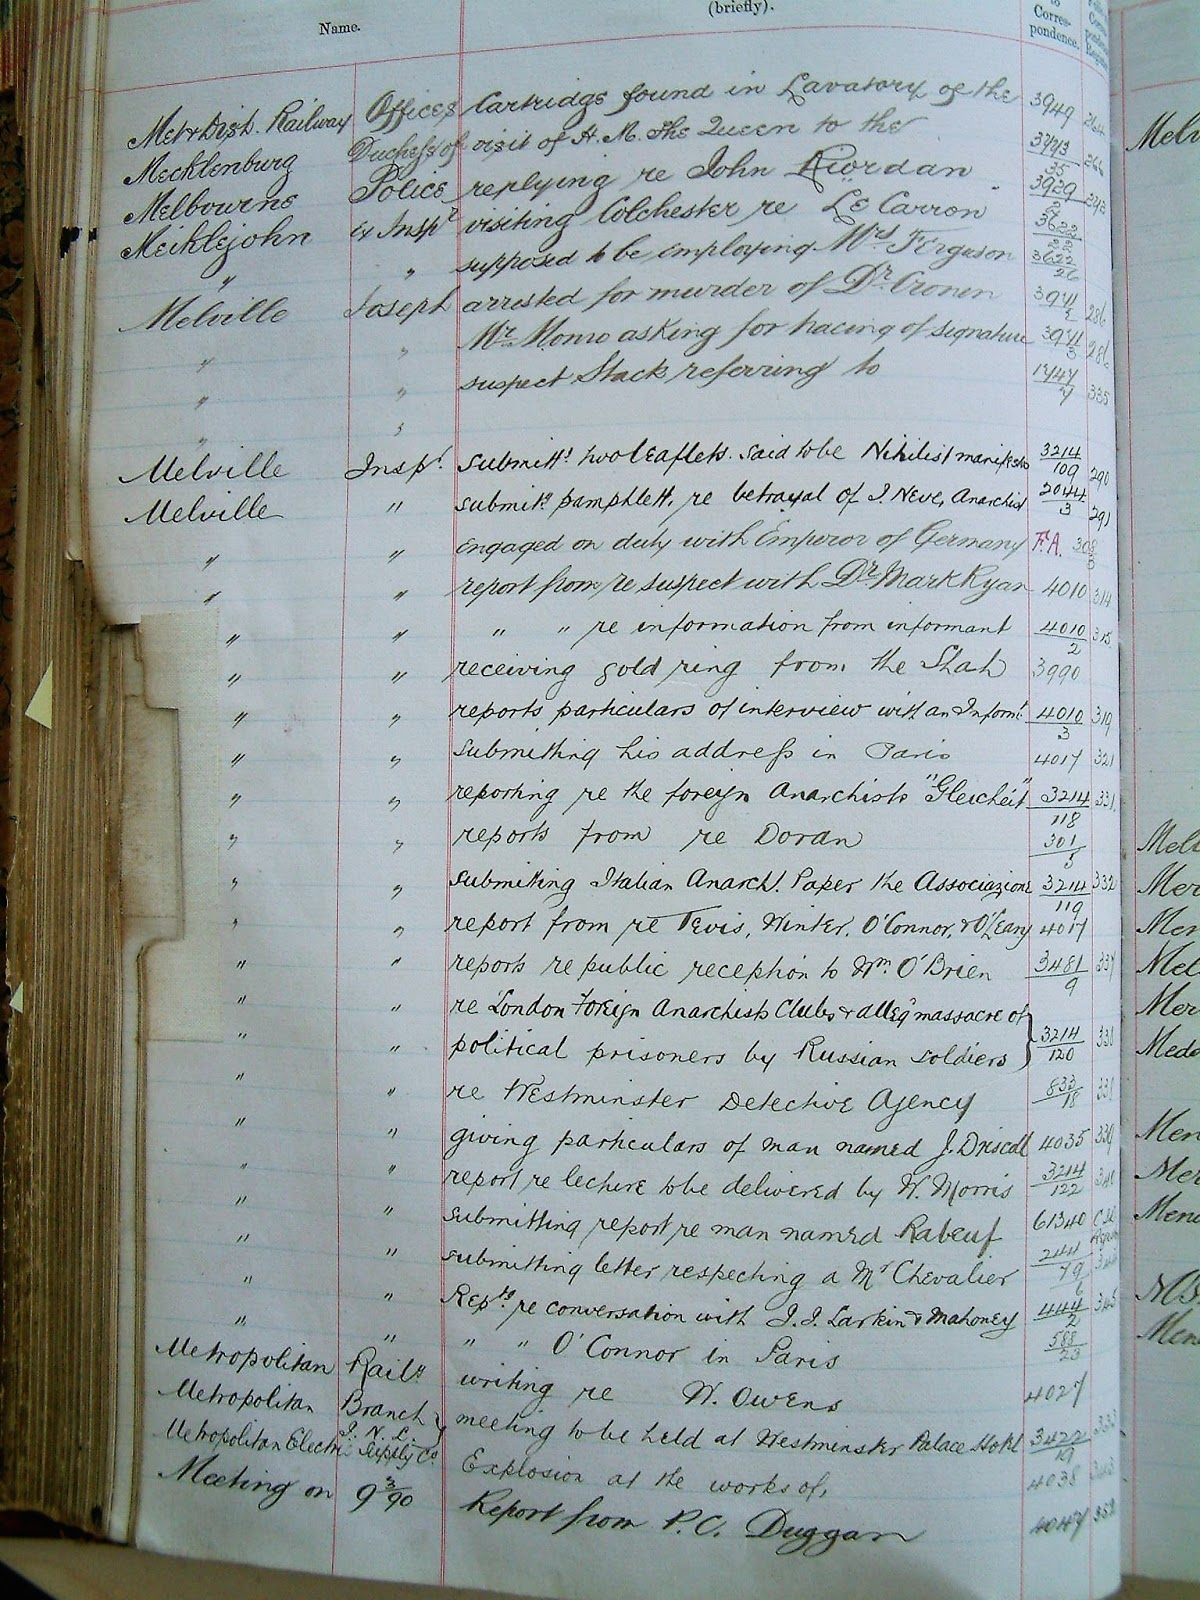 Name.
(briefly).
to Corres- pondence.
Metr. Dist. Railway Offices Cartridge found in Lavatory of the 3949
Mecklenburg Duchess of visit of H. M. The Queen to the 3773/35
Melbourne Police replying re John Riordan 3929/2
Meiklejohn ex Inspr visiting Colchester re Le Carron 3622/22
" " supposed to be employing Mrs Ferguson 3622/26
Melville Joseph arrested for murder of Dr Cronin 286
" " Mr Monro asking for tracing of signature 286
" " suspect Stack referring to 335
Melville Inspr. submitts two leaflets. said to be Nihilist manifesto 3214/109 290
Melville " submits pamphlett, re betrayal of J. Neve, Anarchist 2044/3 291
" " Engaged on duty with Emperor of Germany F.A.
" " report from, re suspect with Dr Mark Ryan 4010 314
" " " " re information from informant 4010/2 315
" " receiving gold ring from the Shah 3990
" " reports particulars of interview with an Informt. 4010/3 319
" " Submitting his address in Paris 4017 321
" " reporting re the foreign Anarchists "Gleicheit" 3214/118 331
" " reports from re Doran 301/5
" " submitting Italian Anarch. Paper the Associazione 3214/119 332
" " report from re Tevis, Winter, O'Connor, & O'Leary 4017
" " reports re public reception to Wm. O'Brien 3481/9 337
" " re London Foreign Anarchists Clubs & alleg'd massacre of
political prisoners by Russian soldiers } 3214/120 338
" " re Westminster Detective Agency 833/18 338
" " giving particulars of man named J. Driscoll 4035 339
" " report re lecture to be delivered by W. Morris 3214/122 340
" " submitting report re man named Rabeuf 61340
" " submitting letter respecting a Mr Chevalier
" " Repts. re conversation with J. J. Larkin & Mahoney 444/2 345
" " " " O'Connor in Paris 588/23
Metropolitan Railw writing re W. Owens 4027
Metropolitan Branch I. N. L. meeting to be held at Westminster Palace Hotel 3422/19 333
Metropolitan Electric Supply Co Explosion at the works of, 4038 343
Meeting on 9 3/90 Report from P.C. Duggan 4047 352
Melv
Mer
Mel
Mer
Men
Mer
Men